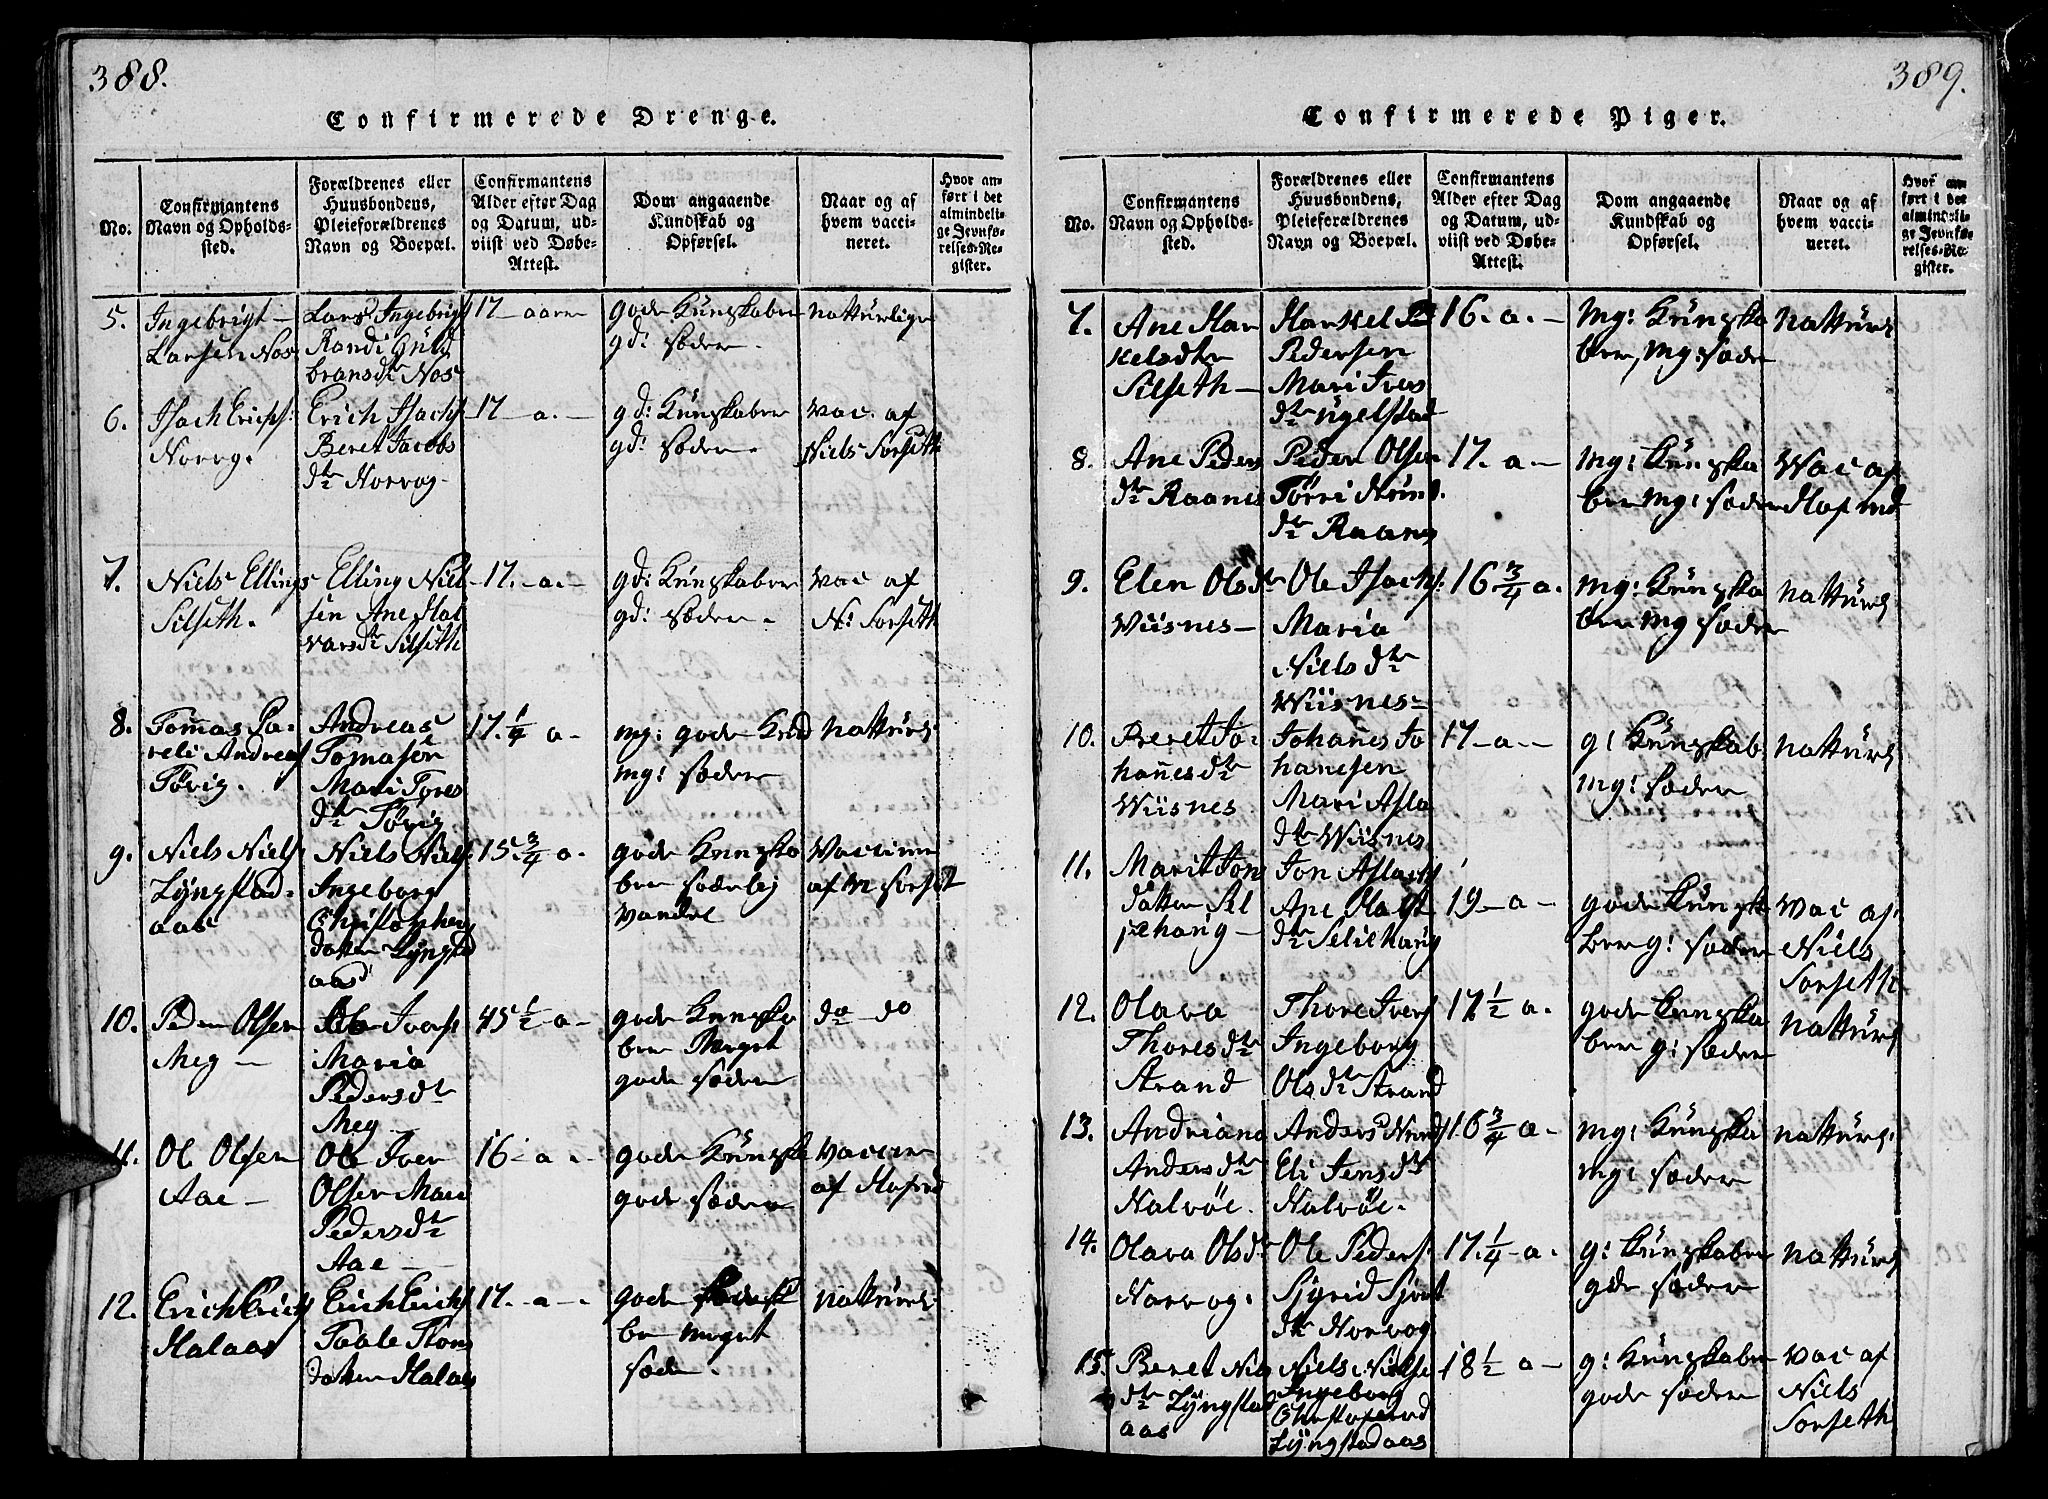 388.
Confirmerede Drenge.
No.
Confirmantens
Navn og Opholds-
sted.
Forældrenes eller
Huusbondens,
Pleieforældrenes
Navn og Boepæl.
Confirmantens
Alder efter Dag
og Datum, ud-
viist ved Døbe-
Attest.
Dom angaaende
Kundskab og
Opførsel.
Naar og af
hvem vacci-
neret.
Hvor an-
ført i det
almindeli-
ge Jevnfø-
relses-Re-
gister.
5.
Ingebrigt
Larsen Nos
Lars Ingebrigt
Randi Guld
bransdtr Nos
17 - aar
gode Kunskaber
gd: sæder
natturlige
6.
Isach Erichs:
Norvg.
Erich Isachs
Beret Jacobs
dtr Norvog
17 - a. -
gd: Kunskaber
gd: sæder
vac. af
Niels Sorseth
7.
Niels Ellings
Silseth.
Elling Niel
sen Ane Hal
varsdtr Silseth
17. - a. -
gd: Kunskaber
gd: sæder
vac af
N: Sorseth
8.
Tommas Pa-
reli Andreas
Tørig.
Andreas
Tomasøn
Mari Tores
dtr Tørig
17. 1/4 a -
mg: gode Knd
mg: sæder
natturl:
9.
Niels Niels
Lyngstad-
aas
Niels Niels:
Ingeborg
Christopher
datter Lyngsta
aas
15. 3/4 a.
gode Kunska
ber sæderlig
vandel
Vaccine
af N Sorset
10.
Peder Olsen
Meg -
Ole Ivars:
Maria
Pedersdtr
Meg
15 1/2 - a -
gode Kunska
ber Meget
gode sæder
do do
11.
Ol Olsen
Aae -
Ole Iver
Olsen Mari
Pedersdtr
Aae
16 - a -
gode Kunska
gode sæder
vaccin
af Hafsrud
12.
Erich Erichs
Halaas
Erich Erichs
Taale Thors
datter Halaas
17. - a - .
gode
ber meget
sæder.
natturl:
389.
Confirmerede Piger.
No.
Confirmantens
Navn og Opholds-
sted.
Forældrenes eller
Huusbondens,
Pleieforældrenes
Navn og Boepæl.
Confirmantens
Alder efter Dag
og Datum, ud-
viist ved Døbe-
Attest.
Dom angaaende
Kundskab og
Opførsel.
Naar og af
hvem vacci-
neret.
Hvor an-
ført i det
almindeli-
ge Jevnfø-
relses-Re-
gister.
7.
Ane Har
kelsdtr
Silseth -
Harkel
Pedersen
Mari Ivers
dtr Ugelstad
16. a. -
mg: Kunska
ber, mg: sæder
natturl
8.
Ane Peders
dtr Raanes
Peder Olsen
Tørri Knud
dtr Raanes
17. a -
mg: Kunska
ber mg: sæder
Vac af
9.
Elen Olsdtr
Wiisnes -
Ole Isachs:
Maria
Niels dtr
Wiisnes -
16 3/4 a.
mg: Kunska
ber mg sæder
natturl
10.
Beret Jo-
hannes dtr
Wiisnes
Johanes Jo
hansen
Mari Asla
dtr Wiisnes
17 - a -
g: Kunskab
mg: sæder
natturl
11.
Marit Jon
datter Sel
jehaug -
Jon Aslachs
Ane
dtr Seliehaug
19 - a -
gode Kunska
ber g: sæder
vac af
Niels
Sorseth
12.
Olava
Thoresdtr
Strand
Thore Ivers
Ingeborg
Olsdtr Strand
17 1/2 a.
gode Kunska
ber g: sæder
natturl
13.
Andriana
Andersdtr
Nalvöe.
Anders Knuds
Eli Jensdtr
Nalvöe.
16 3/4 a -
mg: Kunska
mg: sæder
natturl:
14.
Olava Olsdtr
Norvog:
Ole Peders:
Sjgrid Sjvert
dtr Norvog
17. 1/4 - a.
g: Kunskaber
gde sæder
natturl
15.
Beret Niels
dtr Lyngstad
aas
Niels Nielse
Ingeborg
Lyngstadaas
18 1/2 a -
g: Kunskaber
gode sæder
vac af
Niels
Sorseth